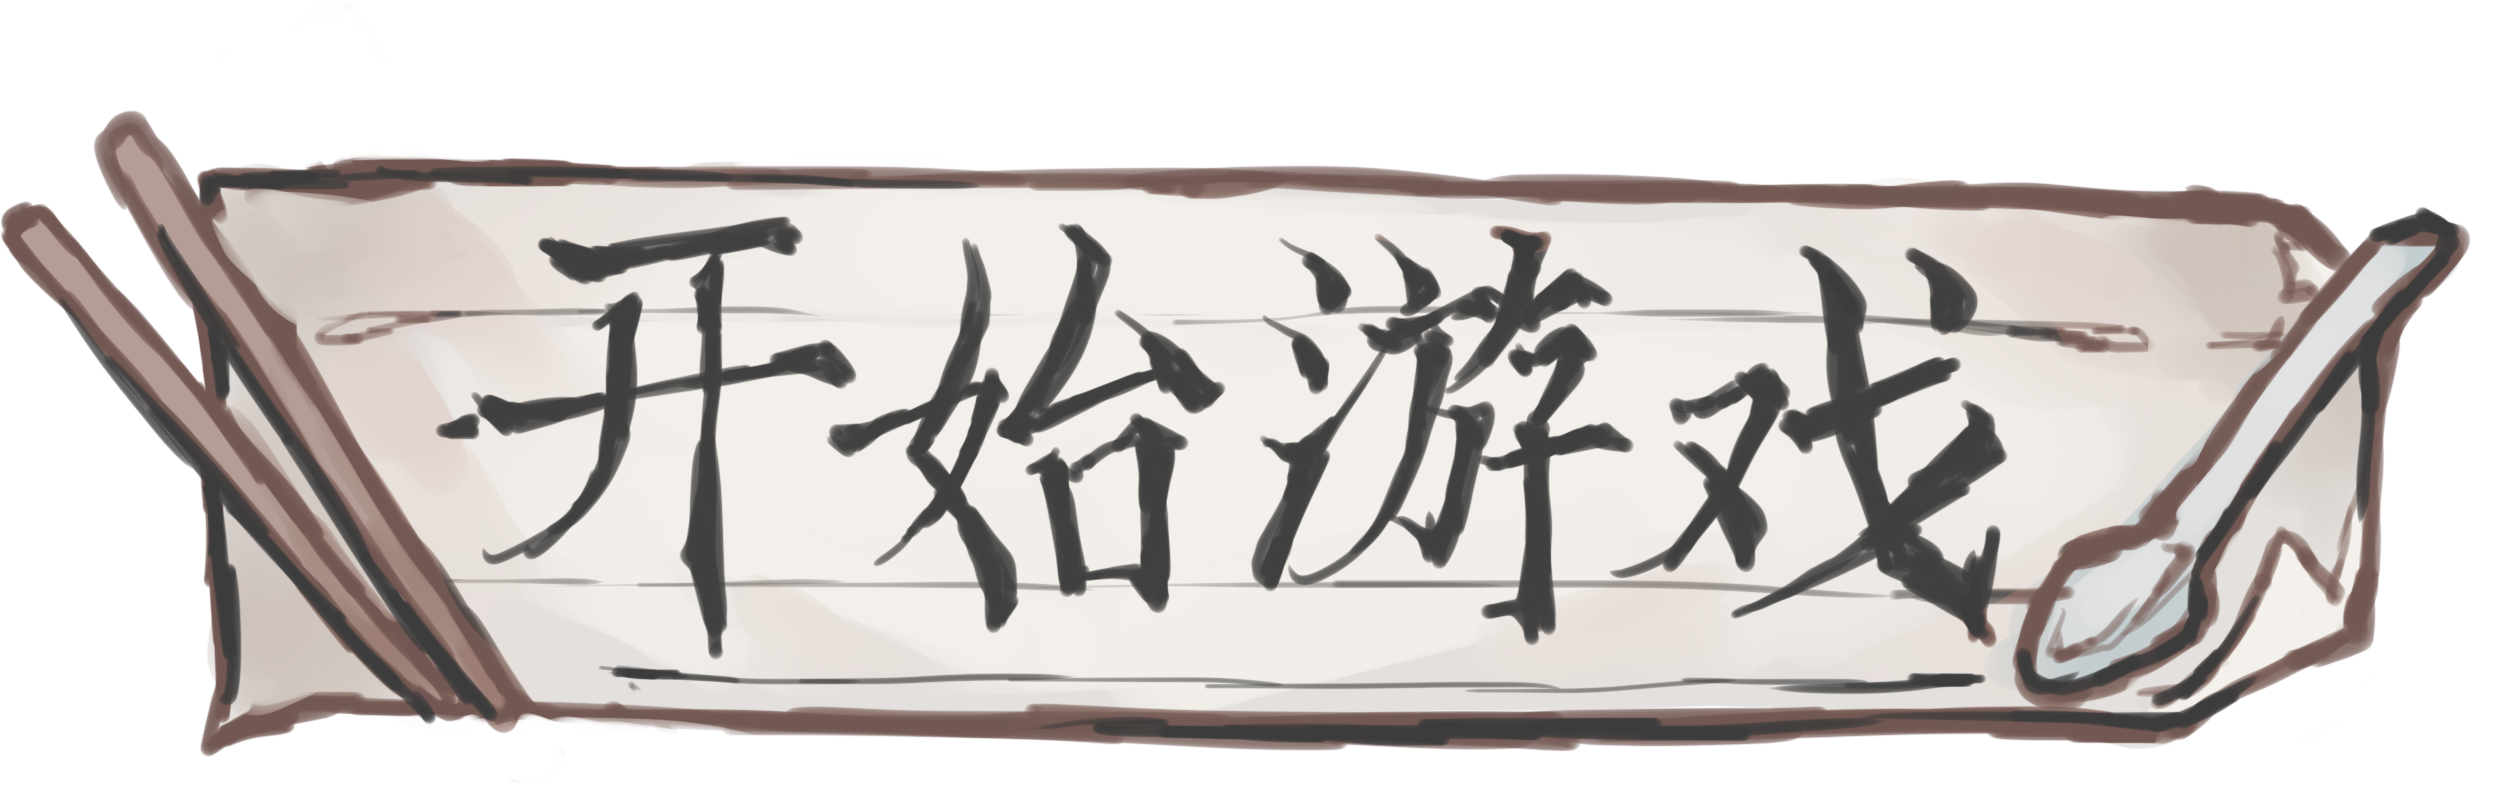 开始游戏